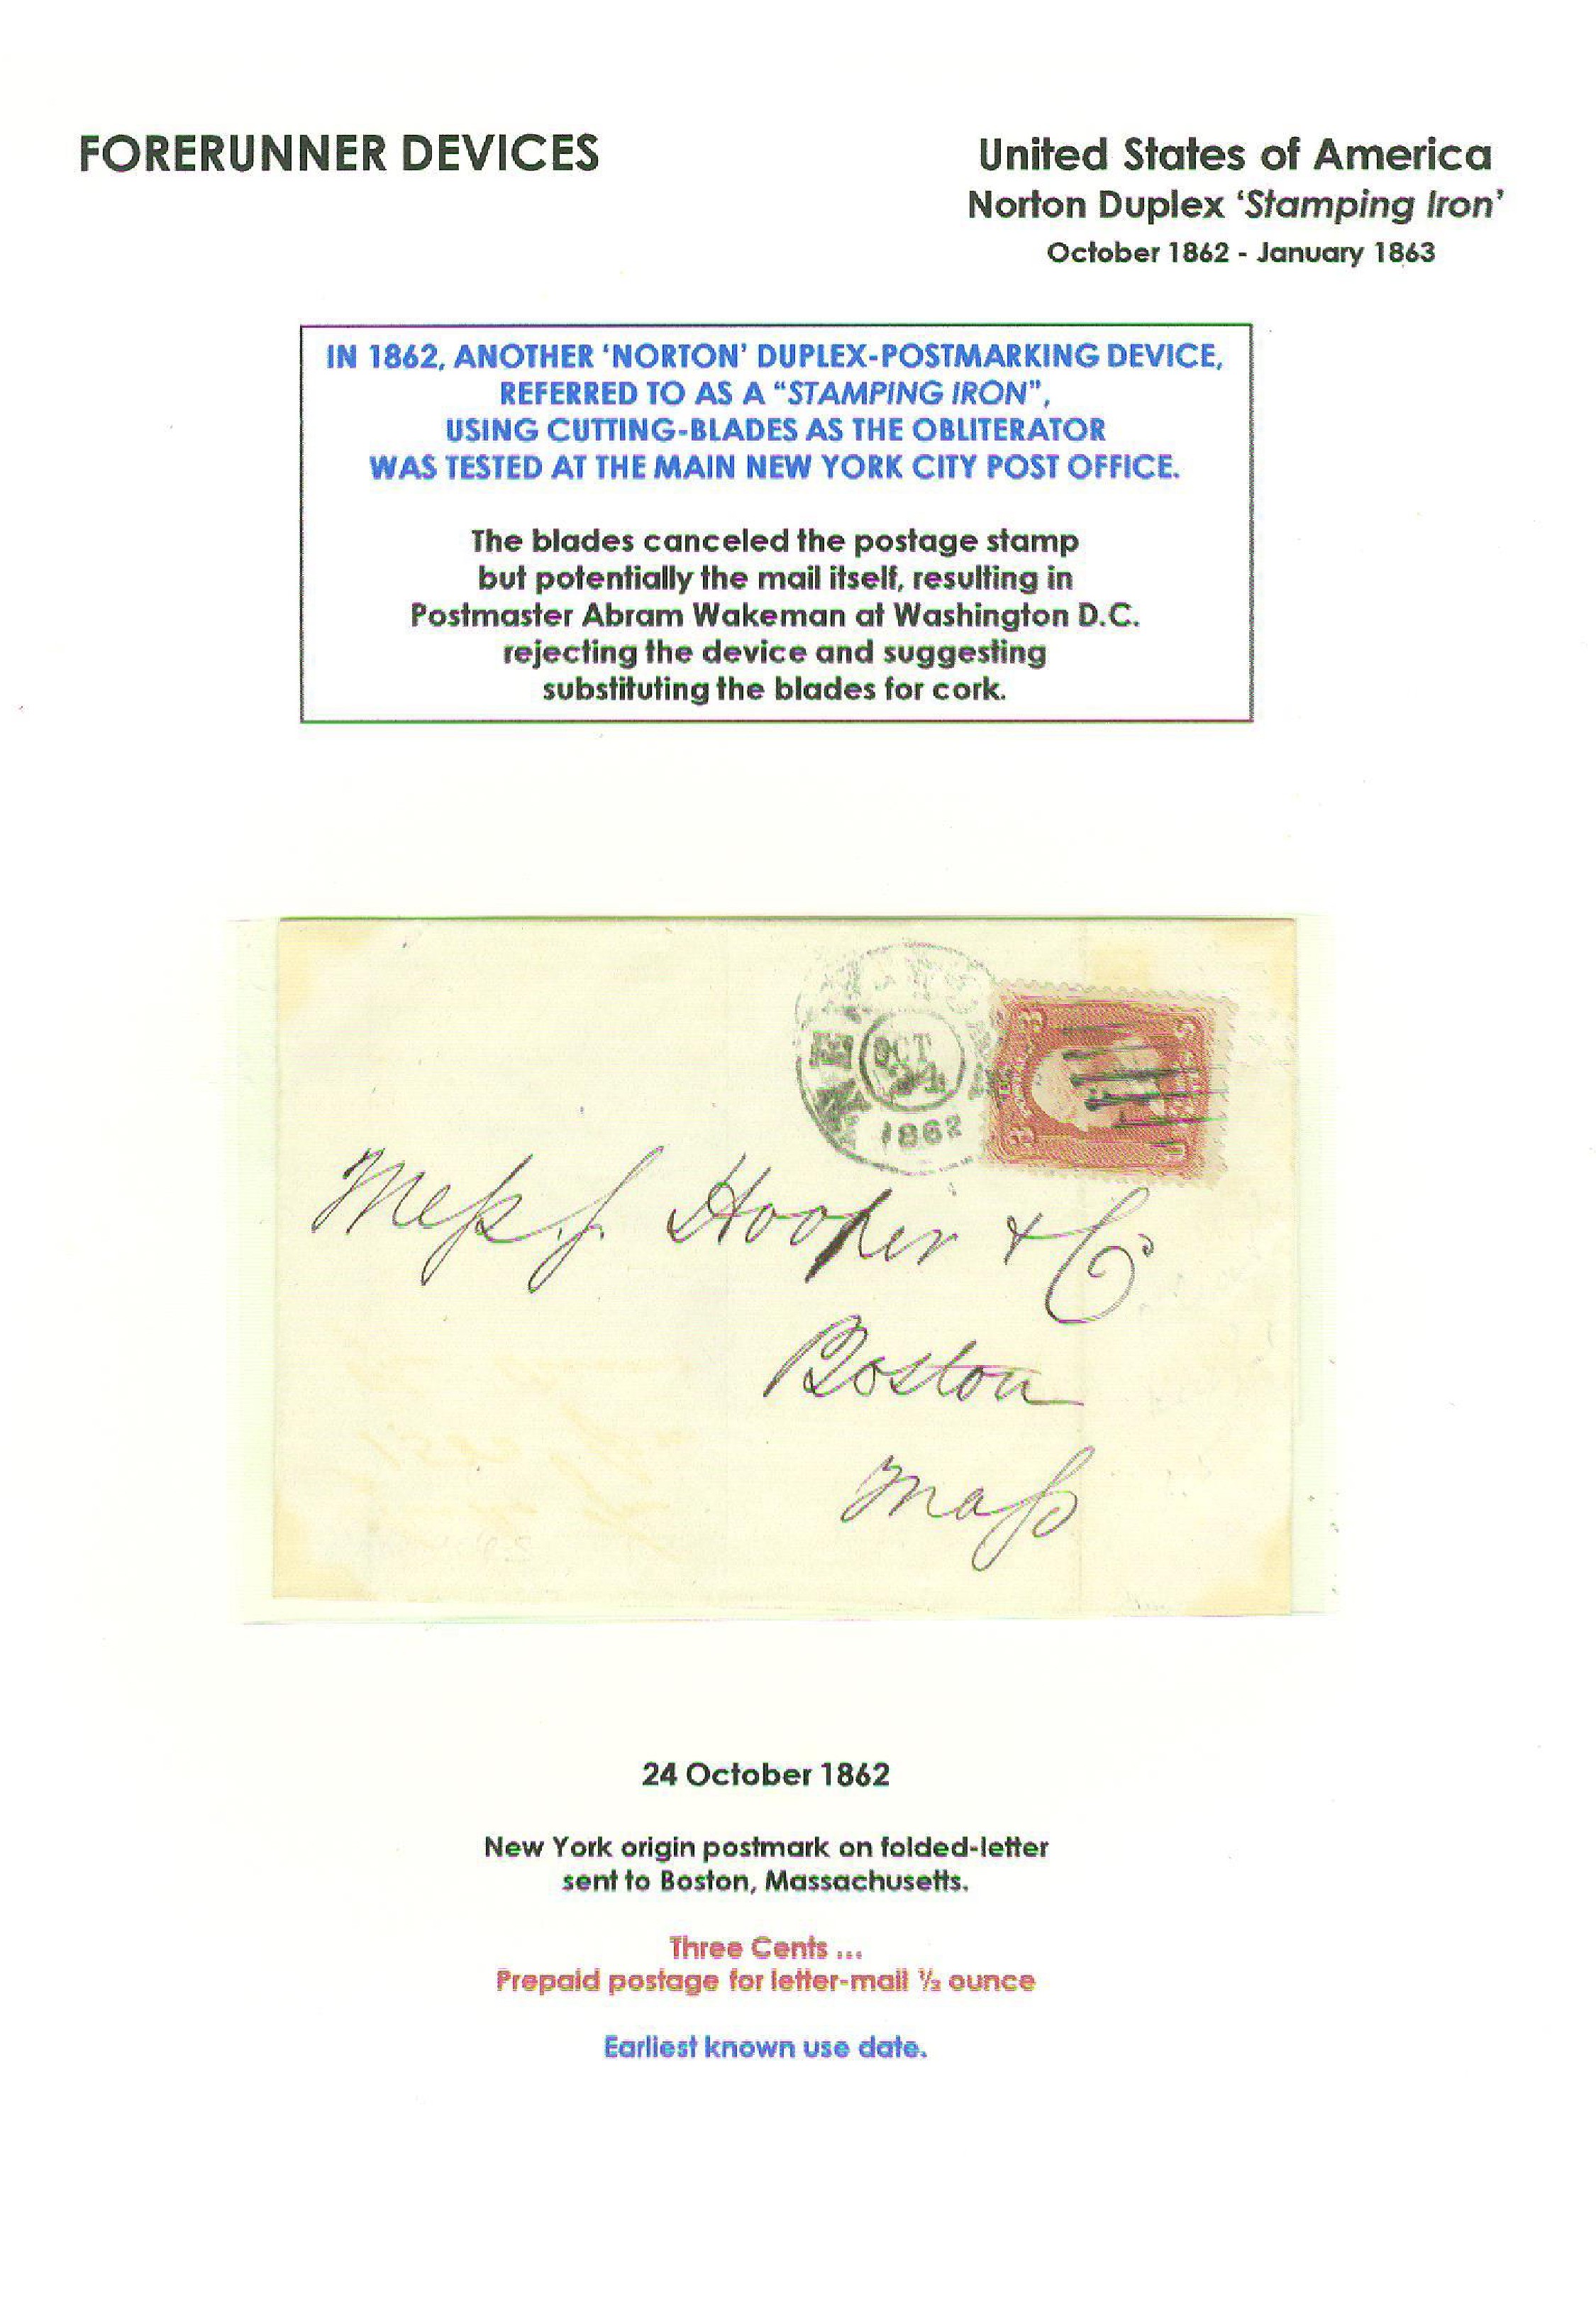 FORERUNNER DEVICES
United States of America
Norton Duplex ‘Stamping Iron’
October 1862 - January 1863
IN 1862, ANOTHER ‘NORTON’ DUPLEX-POSTMARKING DEVICE,
REFERRED TO AS A “STAMPING IRON”,
USING CUTTING-BLADES AS THE OBLITERATOR
WAS TESTED AT THE MAIN NEW YORK CITY POST OFFICE.
The blades canceled the postage stamp
but potentially the mail itself, resulting in
Postmaster Abram Wakeman at Washington D.C.
rejecting the device and suggesting
substituting the blades for cork.
NEW YORK
OCT
24
1862
3
3
Messrs Hooper & Co
Boston
Mass
24 October 1862
New York origin postmark on folded-letter
sent to Boston, Massachusetts.
Three Cents ...
Prepaid postage for letter-mail ½ ounce
Earliest known use date.